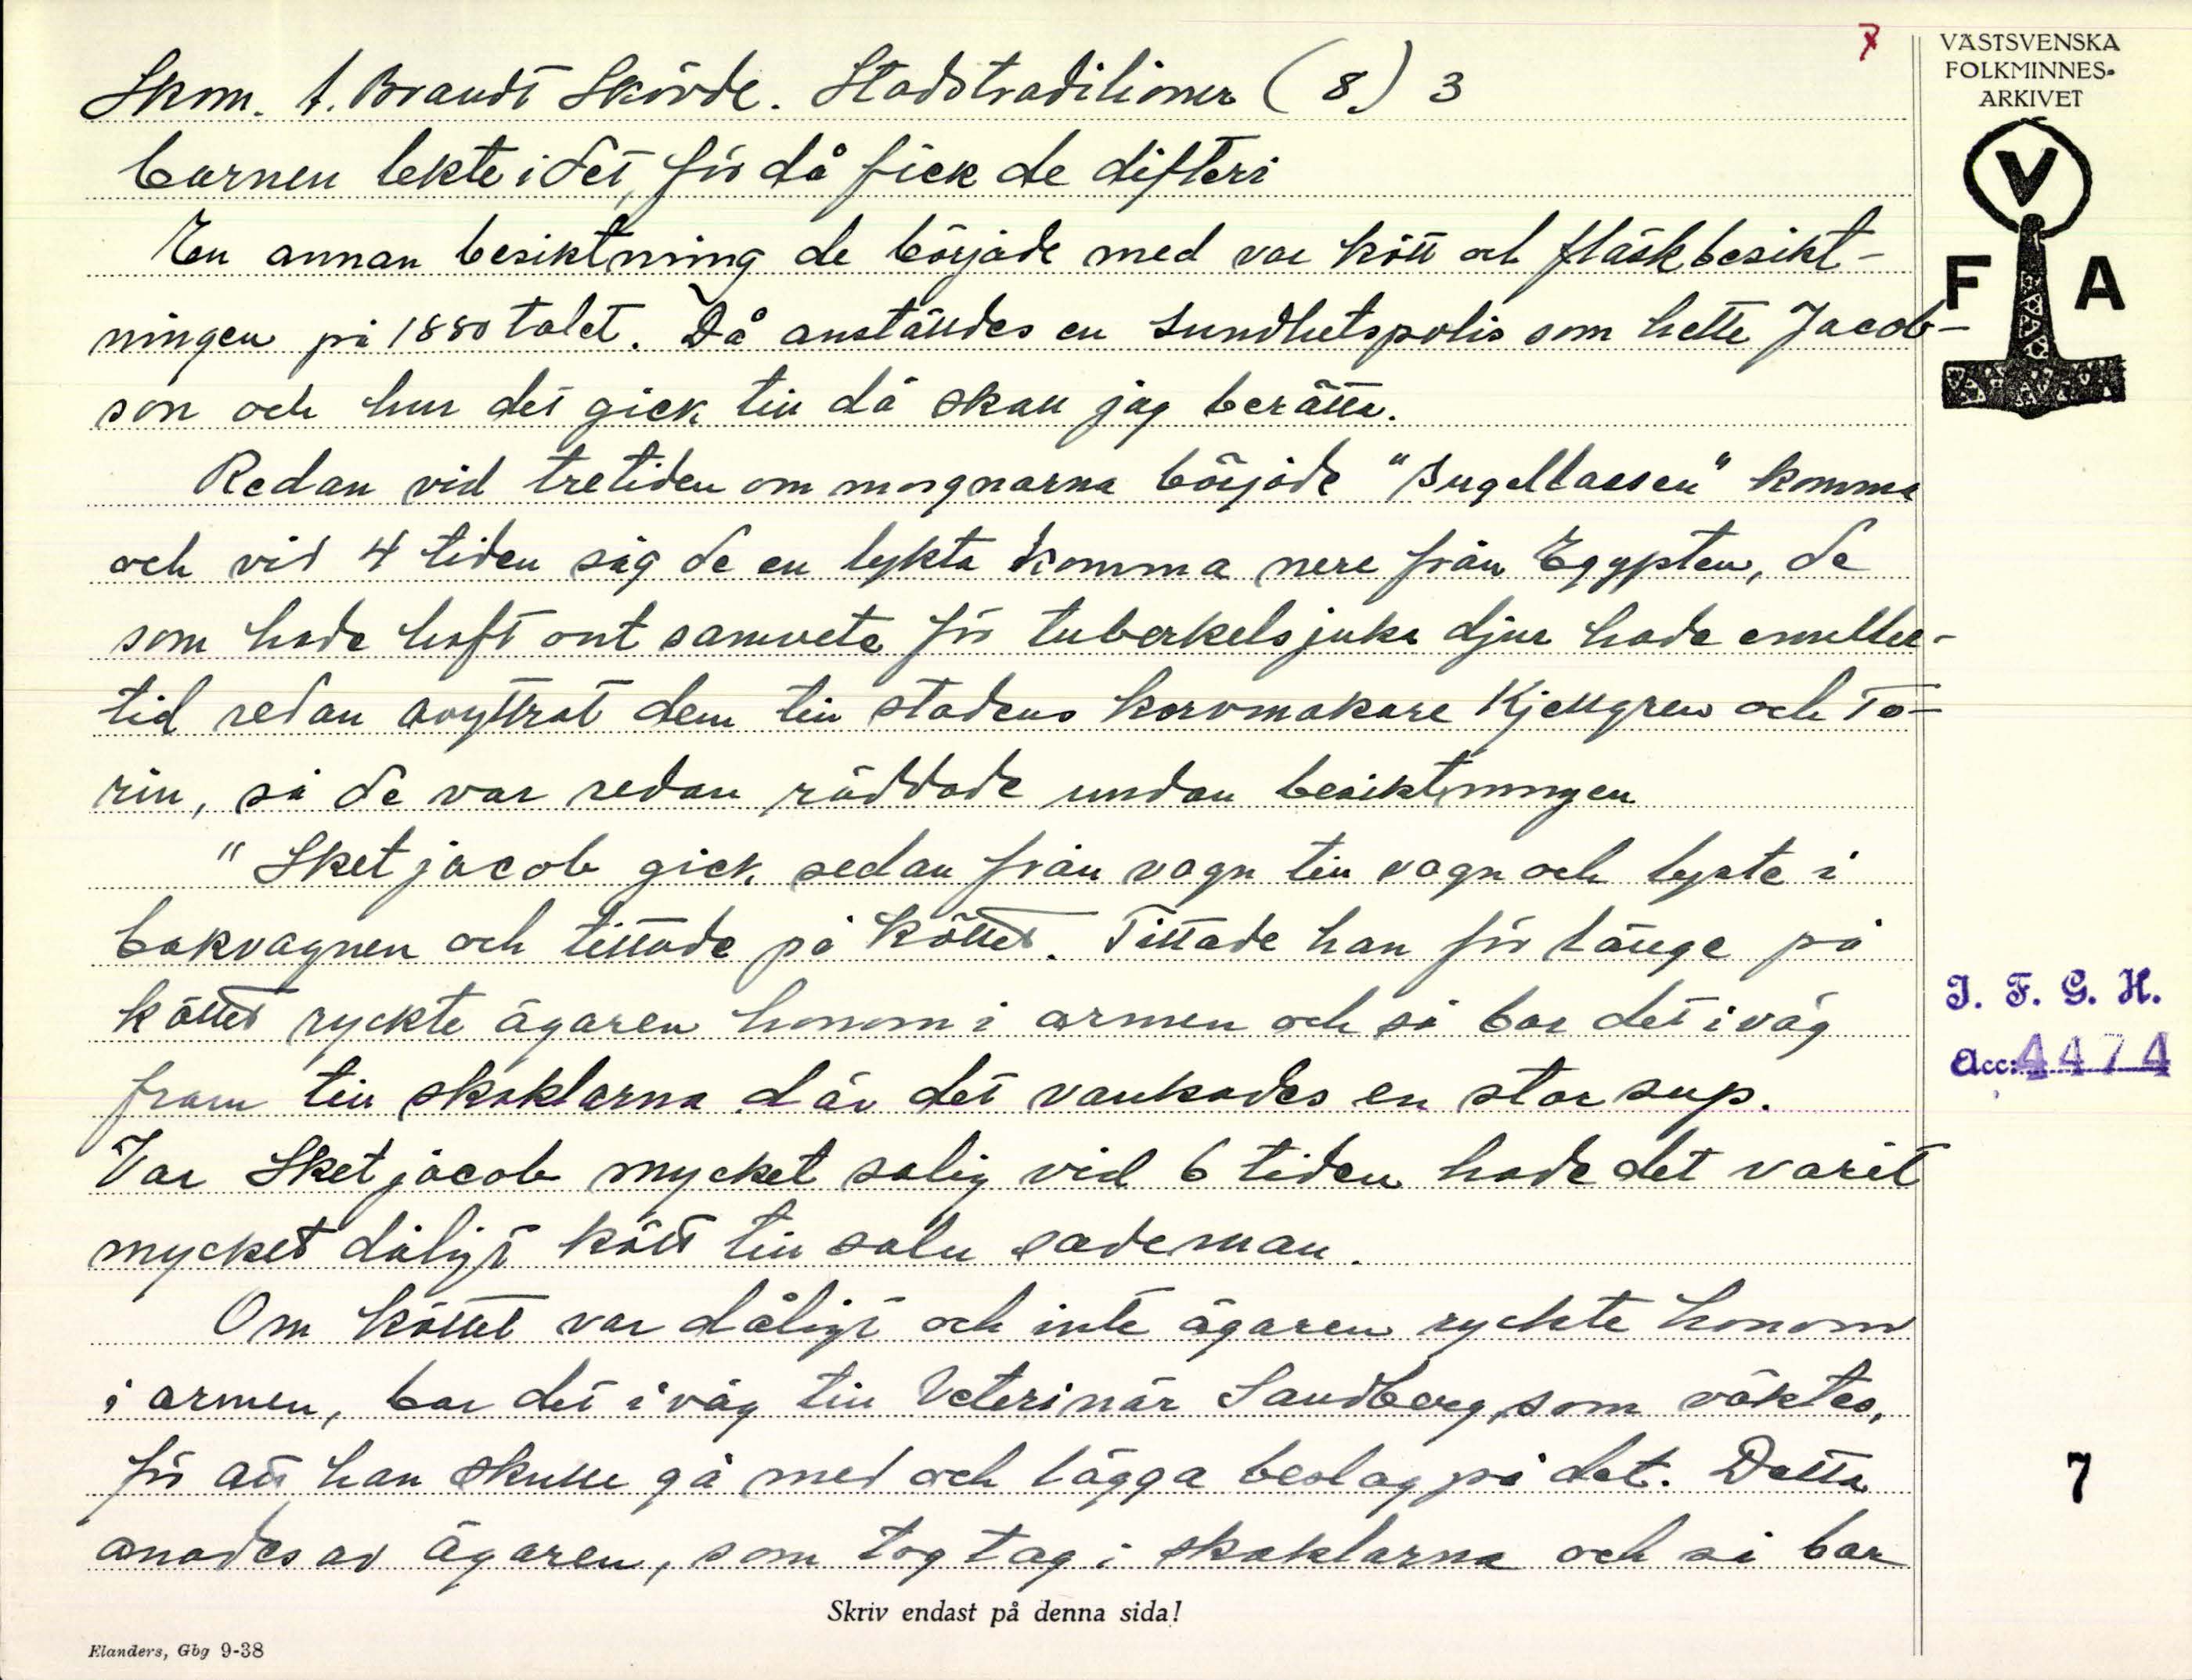 7
VÄSTSVENSKA
FOLKMINNES-
ARKIVET
V
F A
Skom. A. Brandt Skövde. Stadstraditioner (8.) 3
barnen lekte i det, för då fick de difteri
En annan besiktning de började med var kött och fläskbesikt-
ningen på 1880 talet. Då anställdes en sundhetspolis som hette Jacob-
son och hur det gick till då skall jag berätta.
Redan vid tretiden om morgnarna började "Ingelbassen" komma
och vid 4 tiden såg de en lykta komma nere från Egypten, de
som hade haft ont samvete för tuberkelsjuka djur hade emeller-
tid redan avyttrat dem till stadens korvmakare Kjellgren och To-
rin, så de var redan räddade undan besiktningen
"Sketjacob gick sedan från vagn till vagn och lyste i
bakvagnen och tittade på köttet. Tittade han för länge på
köttet ryckte ägaren honom i armen och så bar det iväg
fram till skaklarna där det vankades en stor sup.
Var Sketjacob mycket salig vid 6 tiden hade det varit
mycket dåligt kött till salu sade man.
Om köttet var dåligt och inte ägaren ryckte honom
i armen, bar det iväg till Veterinär Sandberg, som väktes,
för att han skulle gå med och lägga beslag på det. Detta
anades av ägaren, som tog tag i skaklarna och så bar
I. F. G. H.
Acc: 4474
7
Skriv endast på denna sida!
Elanders, Gbg 9-38